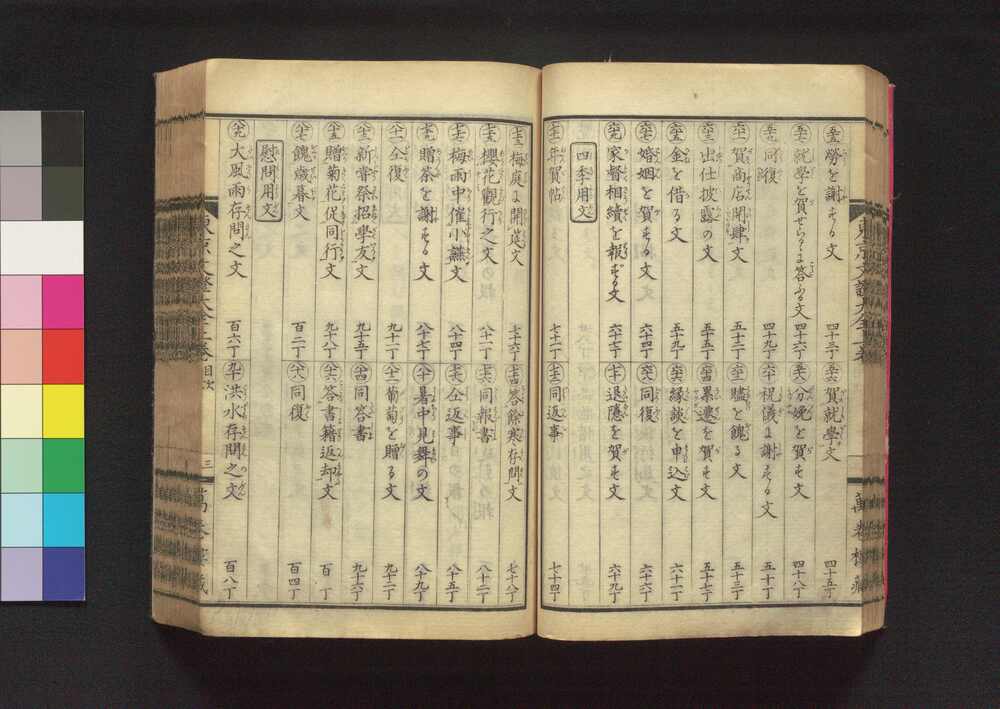 五十五 勞を謝する文 四十三丁
五十六 賀就學文 四十五丁
五十七 就學を賀せらるに答ふる文 四十六丁
五十八 分娩を賀す文 四十八丁
五十九 同復 四十九丁
六十 祝儀に謝する文 五十丁
六十一 賀商店開肆文 五十二丁
六十二 贐を餽る文 五十三丁
六十三 出仕披露の文 五十五丁
六十四 累遷を賀す文 五十七丁
六十五 金を借る文 五十九丁
六十六 縁談を申込文 六十二丁
六十七 婚姻を賀する文 六十四丁
六十八 同復 六十六丁
六十九 家督相續を報ずる文 六十七丁
七十 退隱を賀す文 六十九丁
四季用文
七十一 年賀帖 七十二丁
七十二 同返事 七十四丁
七十三 梅庭に開莚文 七十六丁
七十四 答餘寒存問文 七十八丁
七十五 櫻花觀行之文 八十一丁
七十六 同報書 八十二丁
七十七 梅雨中催小讌文 八十四丁
七十八 仝返事 八十五丁
七十九 贈茶を謝する文 八十七丁
八十 暑中見舞の文 八十九丁
八十一 仝復 九十一丁
八十二 葡萄を贈る文 九十二丁
八十三 新嘗祭招學友文 九十五丁
八十四 同答書 九十六丁
八十五 贈菊花促同行文 九十八丁
八十六 答書籍返却文 百丁
八十七 餽歳暮文 百二丁
八十八 同復 百四丁
慰問用文
八十九 大風雨存問之文 百六丁
九十 洪水存問之文 百八丁
目次
三